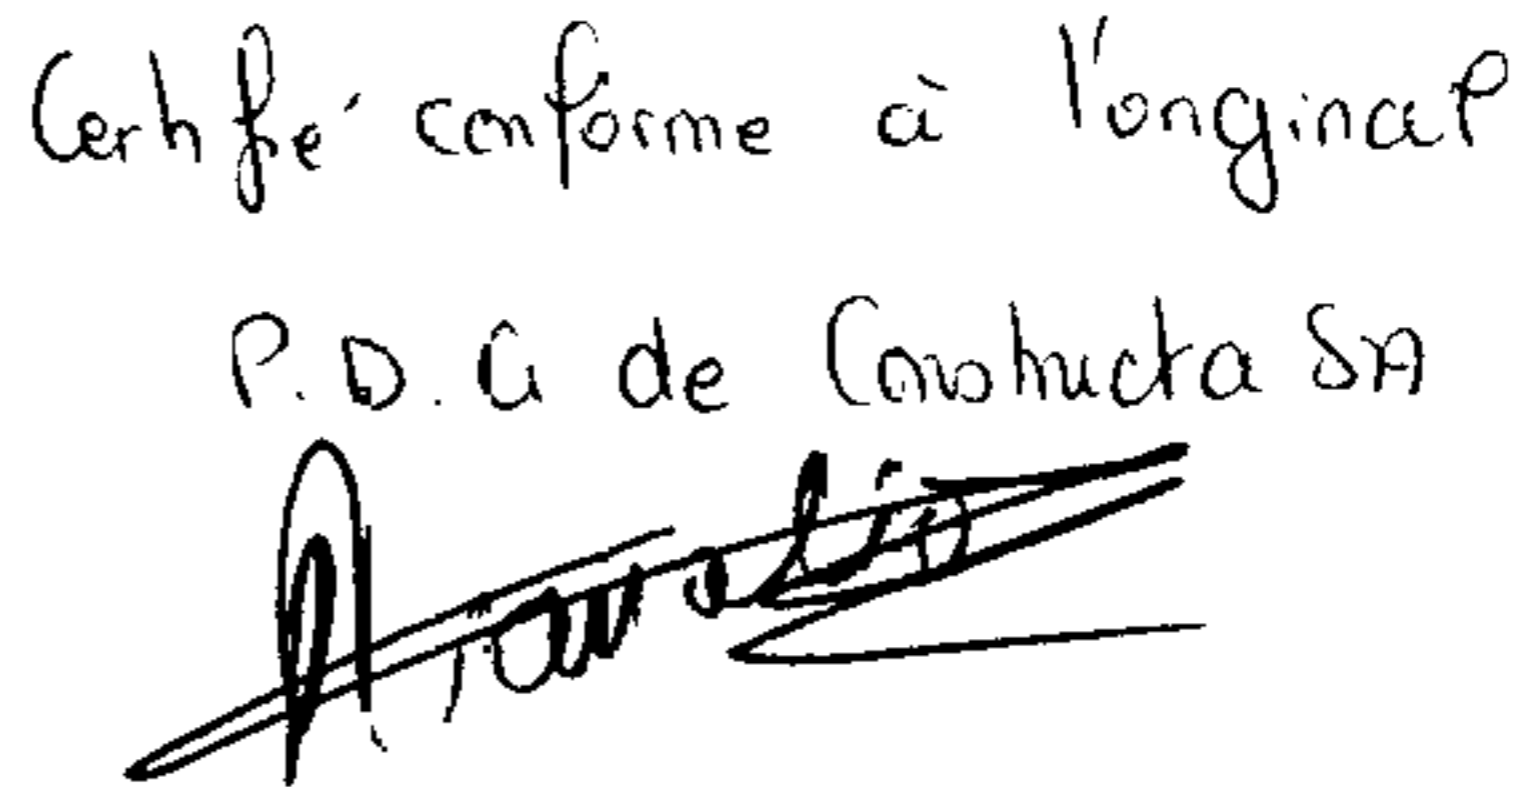 Certifié conforme à l'original
P.D.G de Constructa SA